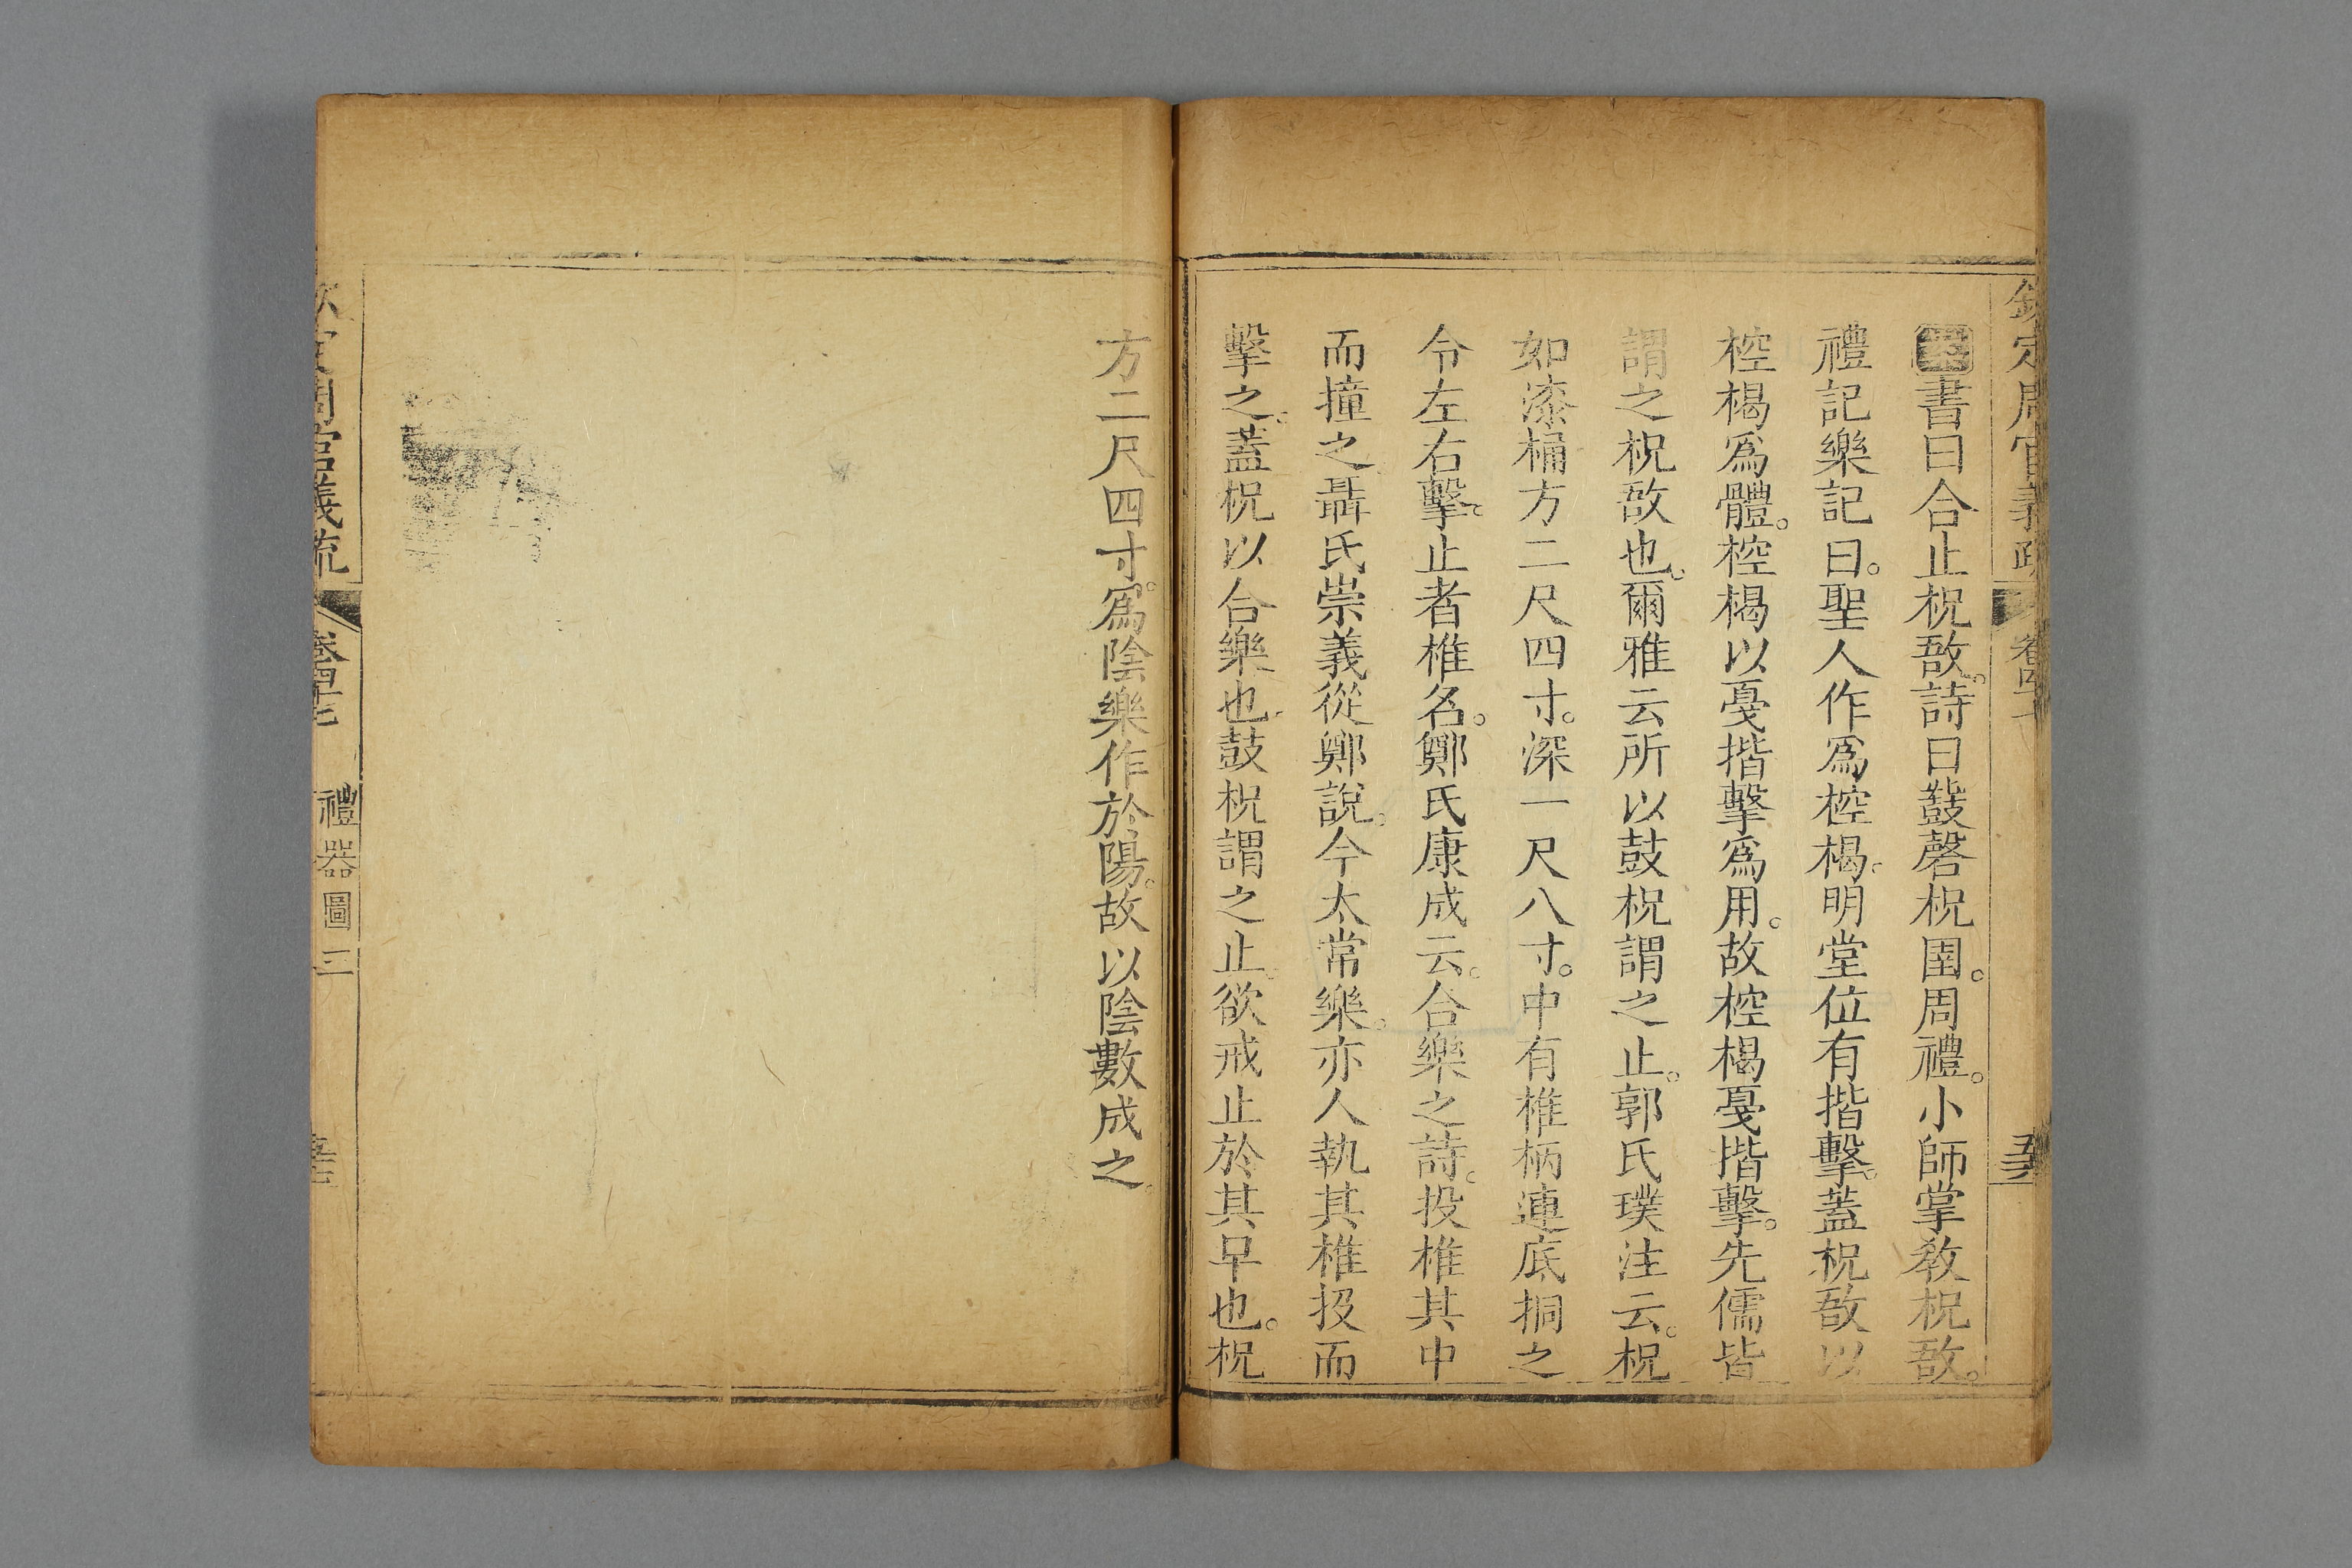 欽定周官義疏 卷四十
書曰合止柷敔。詩曰鼗磬柷圉。周禮。小師掌教柷敔。
禮記樂記曰。聖人作爲椌楬。明堂位有揩擊。蓋柷敔以
椌楬爲體。椌楬以戞揩擊爲用。故椌楬戞揩擊。先儒皆
謂之柷敔也。爾雅云所以鼓柷謂之止。郭氏璞注云。柷
如漆桶方二尺四寸。深一尺八寸。中有椎柄連底挏之
令左右擊。止者椎名。鄭氏康成云。合樂之詩。投椎其中
而撞之聶氏崇義從鄭說。今太常樂。亦人執其椎投而
擊之。蓋柷以合樂也。鼓柷謂之止。欲戒止於其早也。柷
方二尺四寸。爲陰樂作於陽。故以陰數成之。
欽定周官義疏 卷四十七 禮器圖三